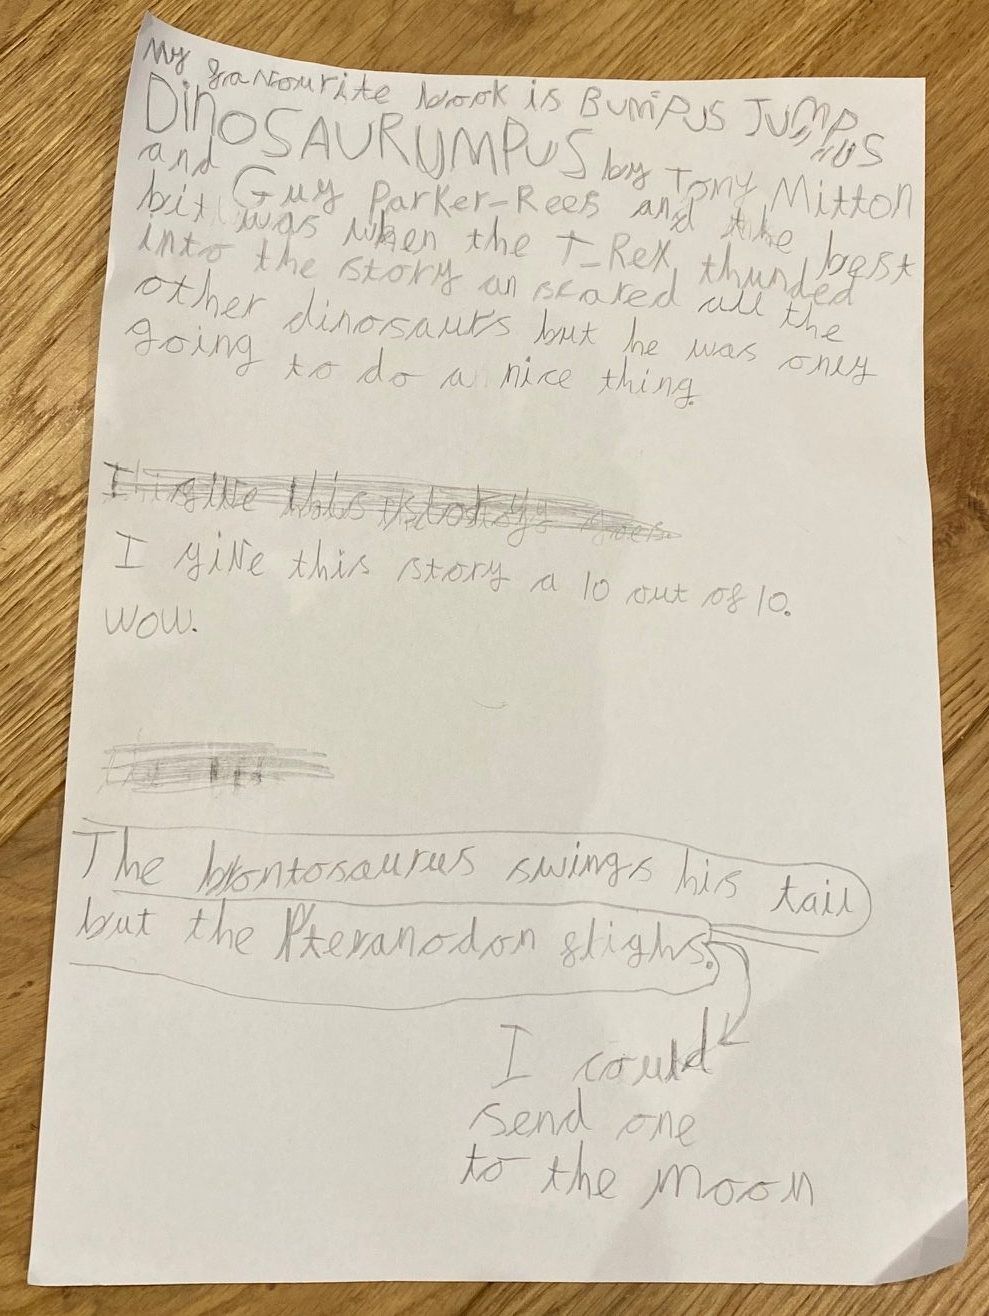 My favourite book is BUMPUS JUMPUS
DINOSAURUMPUS by Tony Mitton
and Guy Parker-Rees and the best
bit was when the T-Rex thunded
into the story an scared all the
other dinosaurs but he was only
going to do a nice thing.
I give this story a 10 out of 10.
wow.
The brontosaurus swings his tail
but the Pteranodon flighs.
I could
send one
to the moon